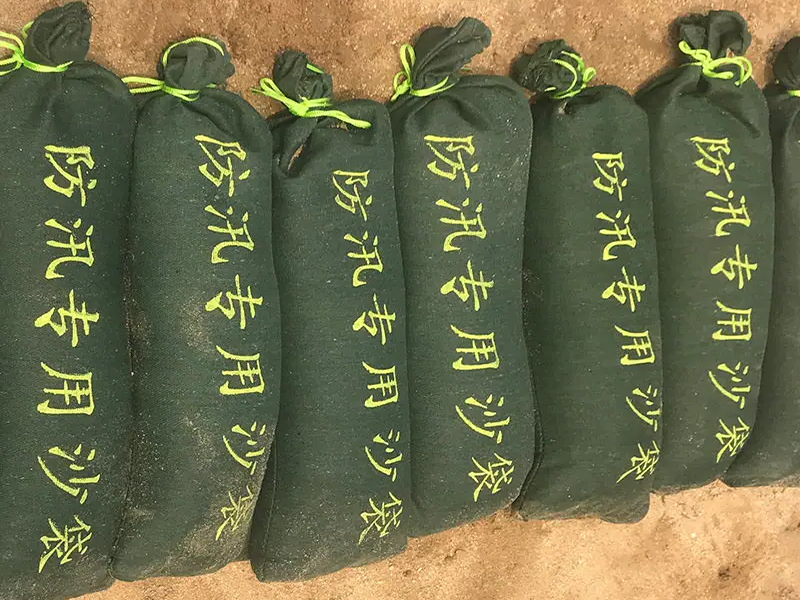 防汛专用沙袋
防汛专用沙袋
防汛专用沙袋
防汛专用沙袋
防汛专用沙袋
防汛专用沙袋